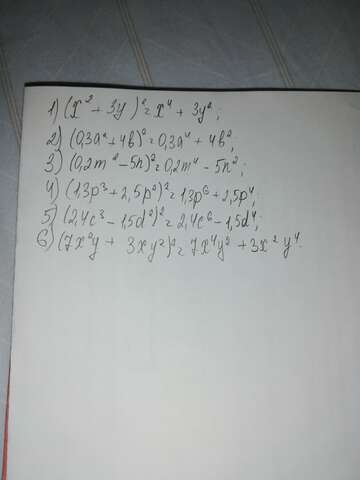 1) (x² + 3y)² = x⁴ + 3y²;
2) (0,3a² + 4в)² = 0,3a⁴ + 4в²;
3) (0,2m² - 5n)² = 0,2m⁴ - 5n²;
4) (1,3p³ + 2,5p²)² = 1,3p⁶ + 2,5p⁴;
5) (2,4c³ - 1,5d²)² = 2,4c⁶ - 1,5d⁴;
6) (7x²y + 3xy²)² = 7x⁴y² + 3x² y⁴.